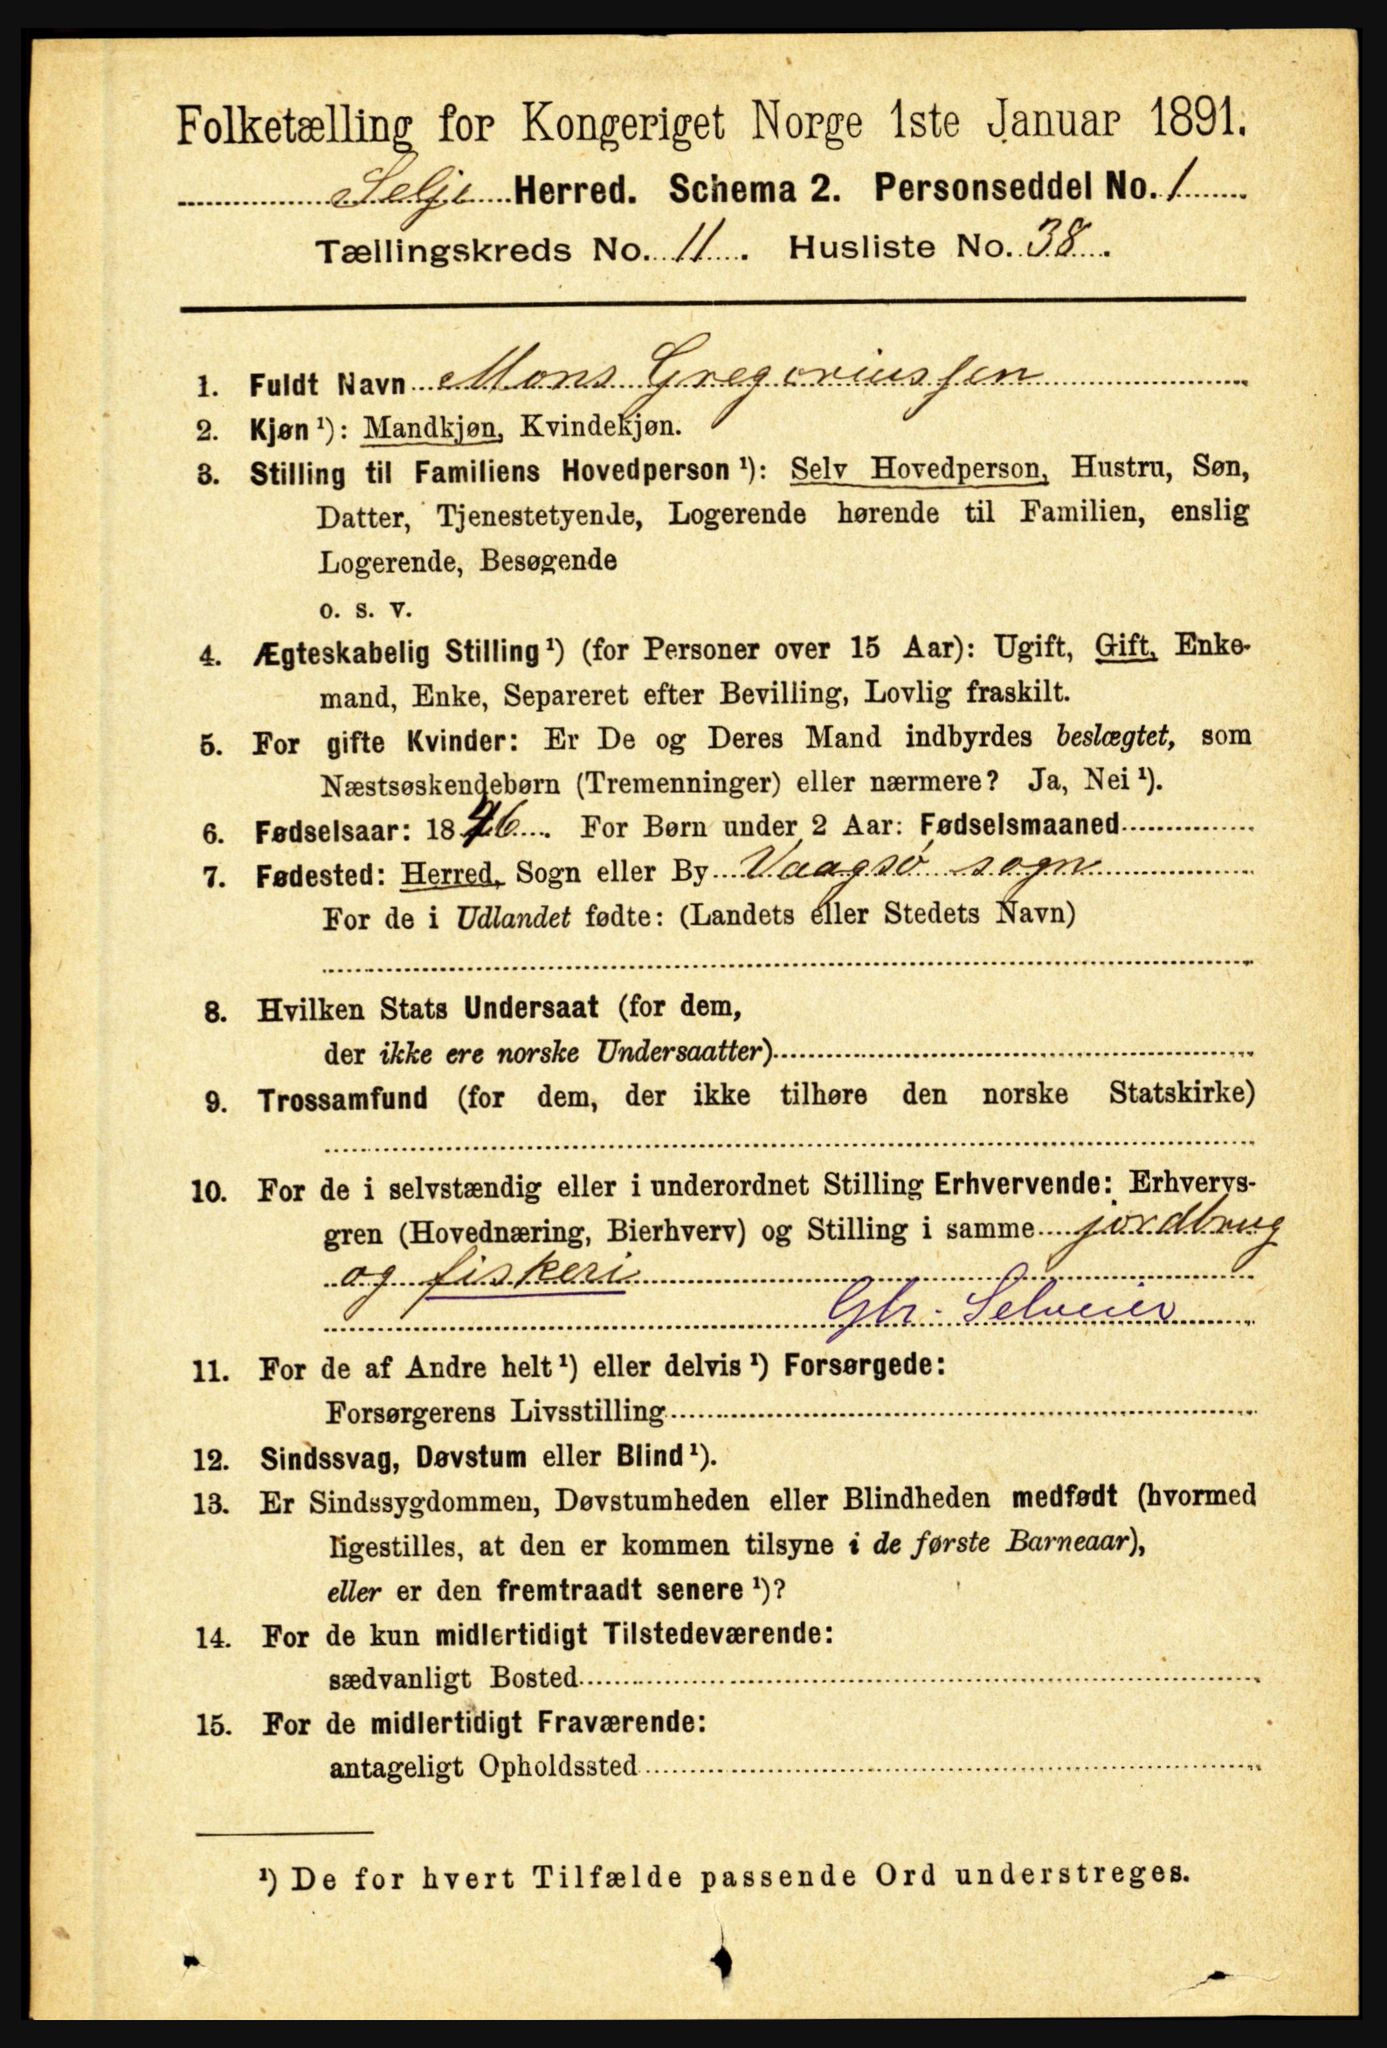 Folketælling for Kongeriget Norge 1ste Januar 1891.
Selje Herred. Schema 2. Personseddel No. 1
Tællingskreds No. 11. Husliste No. 38.
1. Fuldt Navn Mons Gregoriussen
2. Kjøn ¹): Mandkjøn, Kvindekjøn.
3. Stilling til Familiens Hovedperson ¹): Selv Hovedperson, Hustru, Søn,
Datter, Tjenestetyende, Logerende hørende til Familien, enslig
Logerende, Besøgende
o. s. v.
4. Ægteskabelig Stilling ¹) (for Personer over 15 Aar): Ugift, Gift, Enke-
mand, Enke, Separeret efter Bevilling, Lovlig fraskilt.
5. For gifte Kvinder: Er De og Deres Mand indbyrdes beslægtet, som
Næstsøskendebørn (Tremenninger) eller nærmere? Ja, Nei ¹).
6. Fødselsaar: 1846. For Børn under 2 Aar: Fødselsmaaned
7. Fødested: Herred, Sogn eller By Vaagsø sogn
For de i Udlandet fødte: (Landets eller Stedets Navn)
8. Hvilken Stats Undersaat (for dem,
der ikke ere norske Undersaatter)
9. Trossamfund (for dem, der ikke tilhøre den norske Statskirke)
10. For de i selvstændig eller i underordnet Stilling Erhvervende: Erhvervs-
gren (Hovednæring, Bierhverv) og Stilling i samme jordbrug
og fiskeri
Gbr. Selveier
11. For de af Andre helt ¹) eller delvis ¹) Forsørgede:
Forsørgerens Livsstilling
12. Sindssvag, Døvstum eller Blind ¹).
13. Er Sindssygdommen, Døvstumheden eller Blindheden medfødt (hvormed
ligestilles, at den er kommen tilsyne i de første Barneaar),
eller er den fremtraadt senere ¹)?
14. For de kun midlertidigt Tilstedeværende:
sædvanligt Bosted
15. For de midlertidigt Fraværende:
antageligt Opholdssted
¹) De for hvert Tilfælde passende Ord understreges.